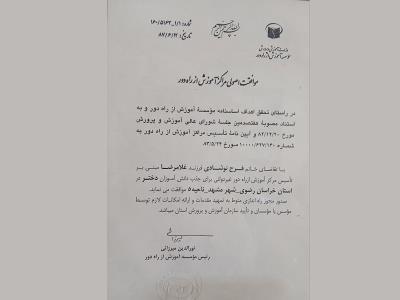 شماره: ۱۶۰/۵۱۶۲_۱/۱
تاریخ: ۸۷/۶/۱۲
مؤسسه آموزش از راه دور
موافقت اصولی مراکز آموزش از راه دور
در راستای تحقق اهداف اساسنامه مؤسسه آموزش از راه دور و به
استناد مصوبه هفتصدمین جلسه شورای عالی آموزش و پرورش
مورخ ۸۲/۱۲/۲۰ و آیین نامه تأسیس مراکز آموزش از راه دور به
شماره ۱۰۰۰۰/۶۹۷/۱۴۰ مورخ ۸۳/۵/۲۴
با تقاضای خانم فرح نوشادی فرزند غلامرضا مبنی بر
تأسیس مرکز آموزش از راه دور غیردولتی برای جذب دانش آموزان دختر در
استان خراسان رضوی_شهر مشهد_ناحیه۵ موافقت می نماید.
صدور مجوز راه اندازی منوط به تمهید مقدمات و ارائه امکانات لازم توسط
مؤسس یا مؤسسان و تأیید سازمان آموزش و پرورش استان میباشد.
نورالدین میرزائی
رئیس مؤسسه آموزش از راه دور